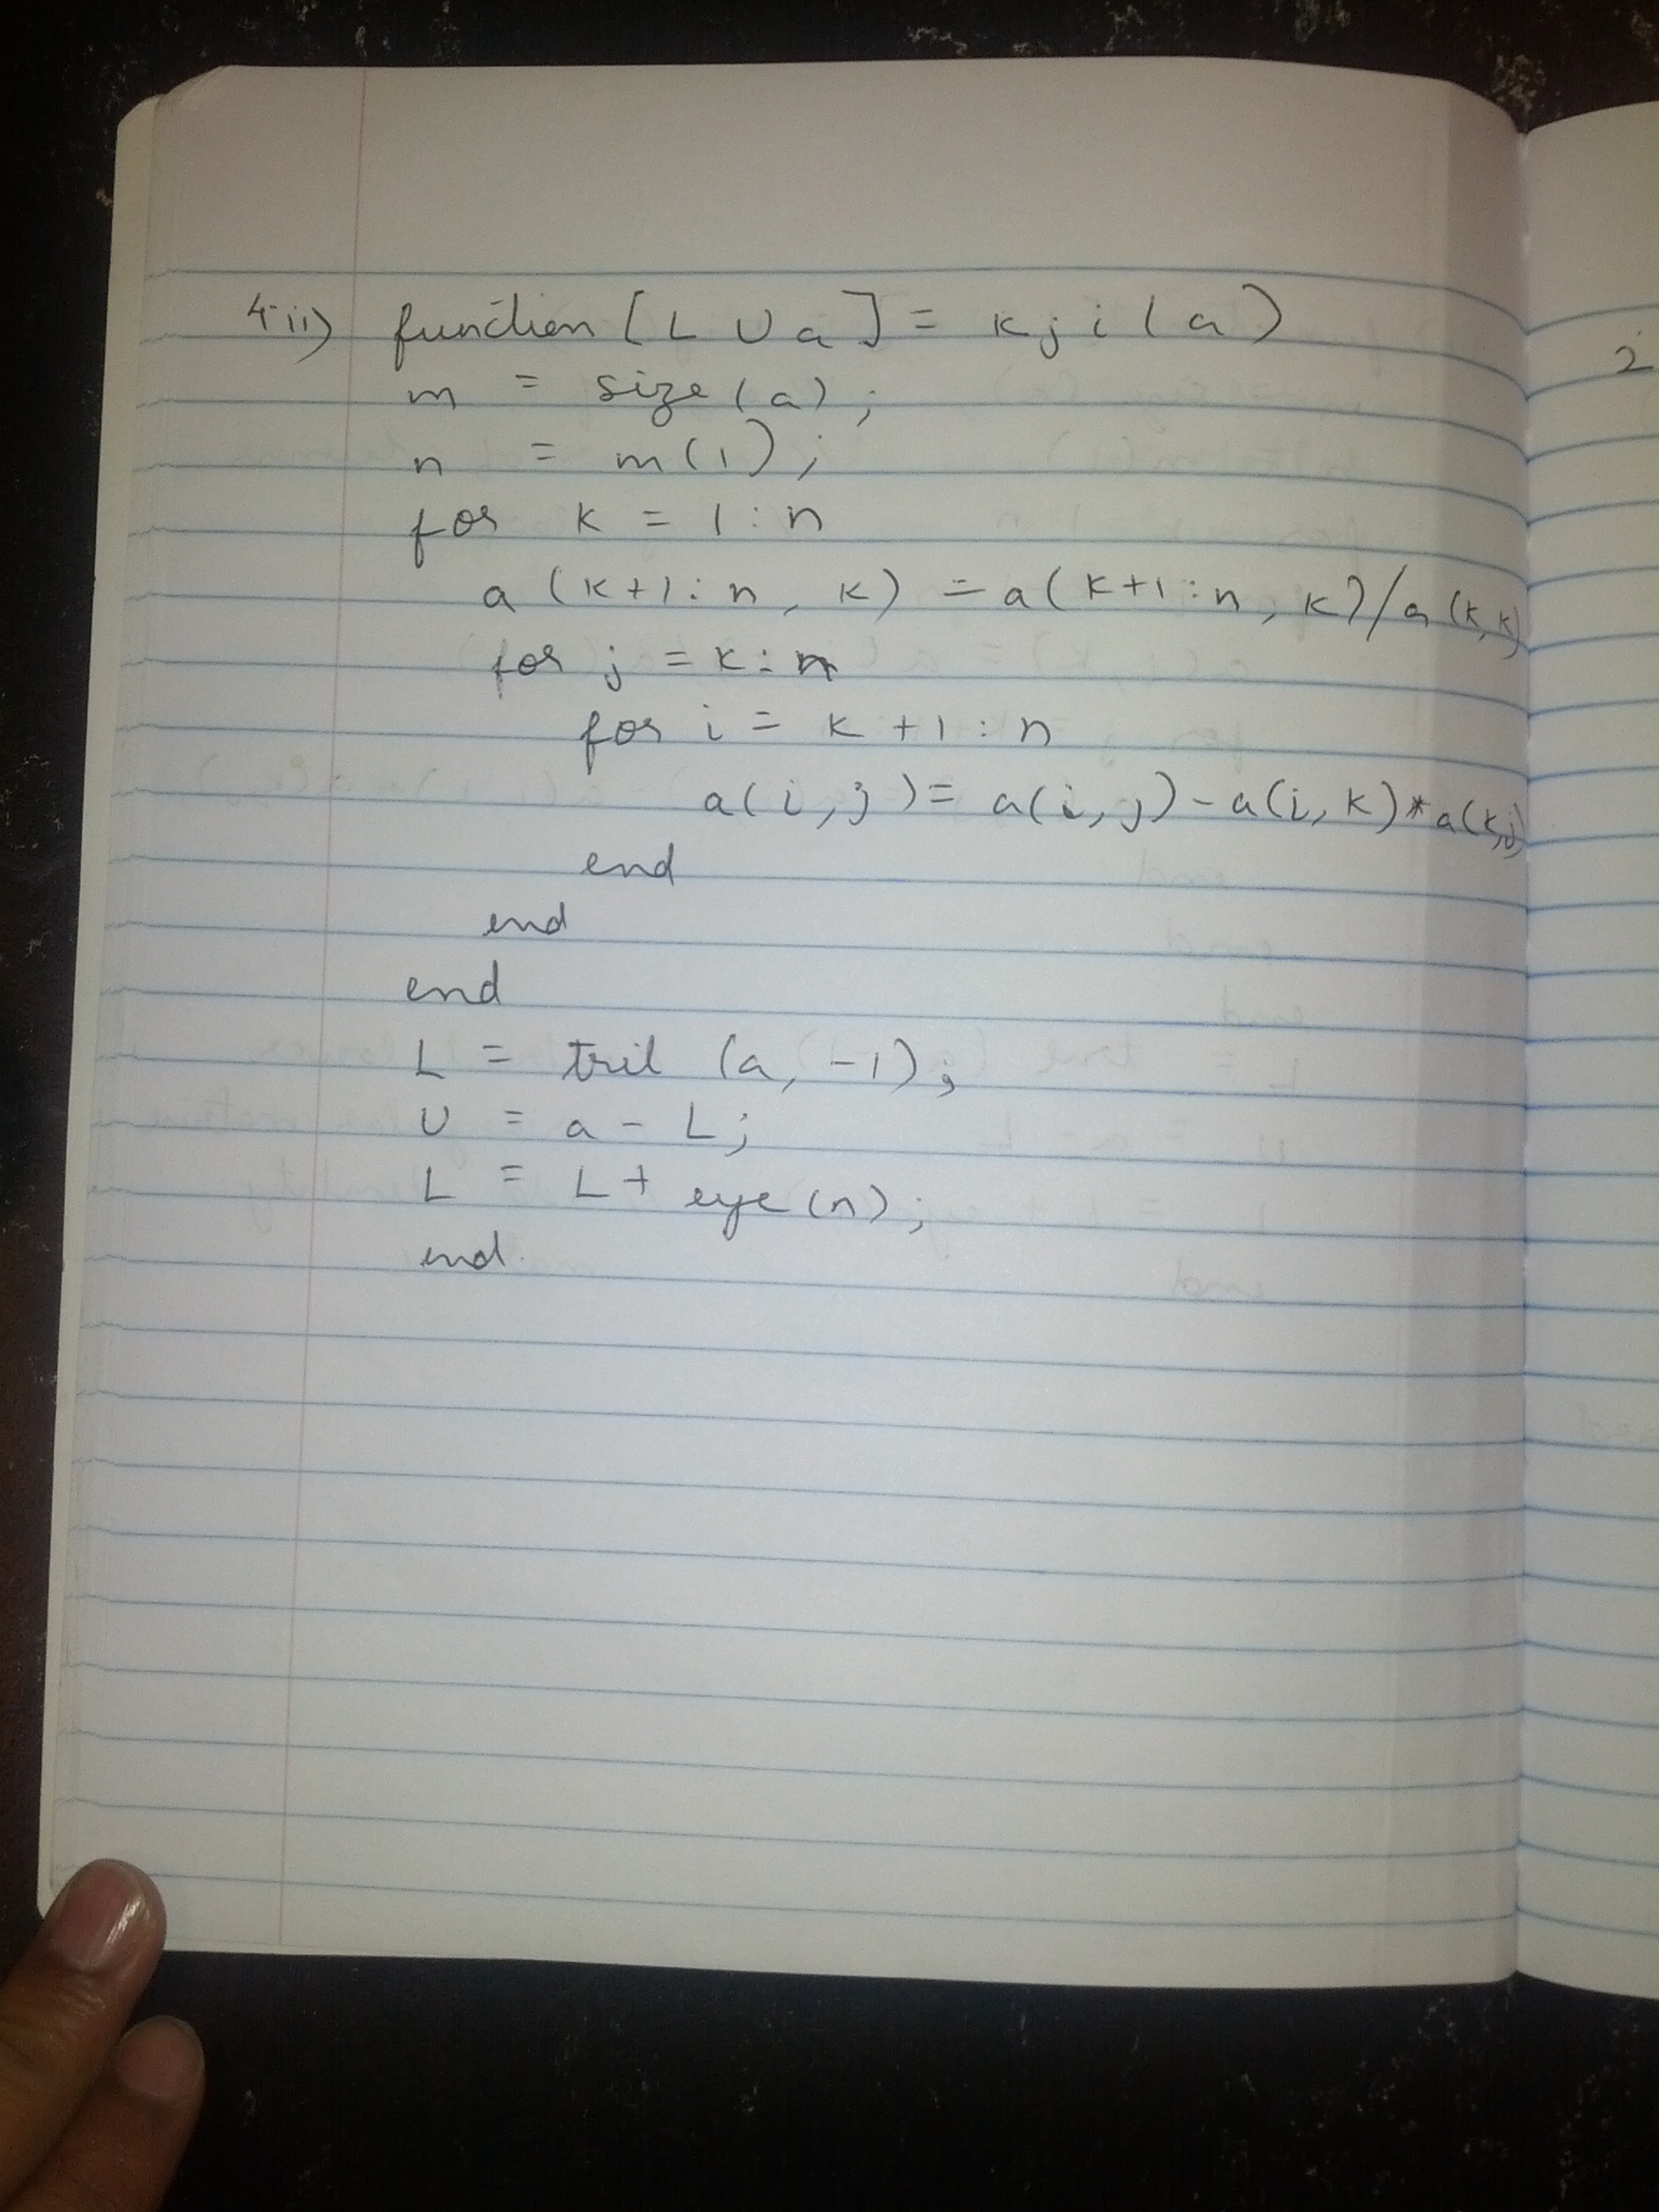 4 ii) function [L U a] = kji(a)
m = size(a);
n = m(1);
for k = 1:n
a(k+1:n, k) = a(k+1:n, k)/a(k,k)
for j = k:n
for i = k+1:n
a(i,j) = a(i,j)-a(i,k)*a(k,j)
end
end
end
L = tril (a, -1);
U = a - L;
L = L + eye(n);
end.
2